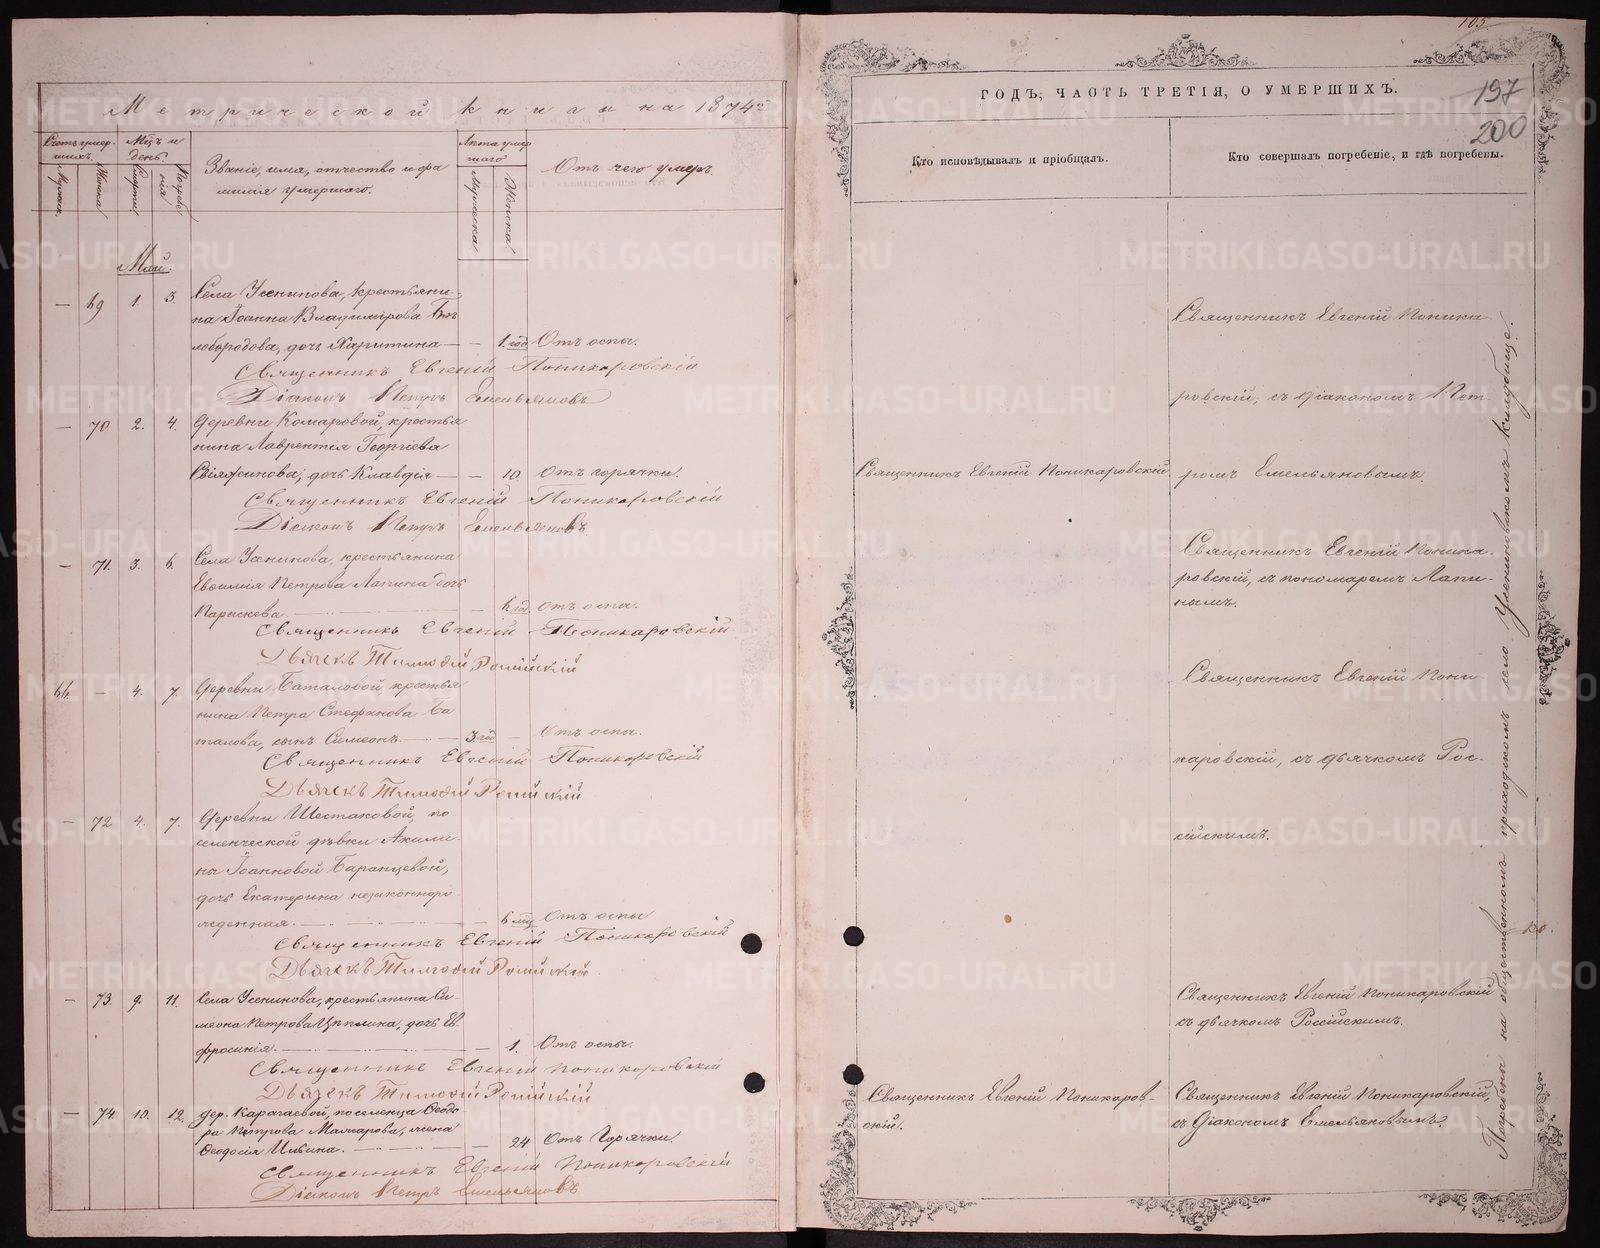 Метрической книги на 1874й
Счетъ умер-
шихъ.
Мцъ и
день.
Званіе, имя, отчество и фа
милія умершаго.
Лѣта умер
шаго
Отъ чего умеръ
Мужск.
Женска
Смерти.
Погребе
нія
Мужеска
Женска.
Май.
— 69 1. 3. Села Усенинова, крестьяни-
на Іоанна Владимірова Бѣ
лобородова, дочь Харитина — — 1. год Отъ оспы.
Священникъ Евгеній Поникаровскій
Діаконъ Петръ Емельяновъ
— 70 2. 4. Деревни Комаровой, крестья
нина Лаврентія Георгіева
Свіяжинова, дочь Клавдія — — 10 Отъ горячки.
Священникъ Евгеній Поникаровскій
Діаконъ Петръ Емельяновъ
— 71. 3. 6. Села Усенинова, крестьянина
Евѳимія Петрова Лапина дочь
Параскева. — год. Отъ оспы.
Священникъ Евгеній Поникаровскій
Дьячекъ Тимоѳей Россійскій
66 — 4. 7. Деревни Баталовой крестья
нина Петра Стефанова Ба
талова, сынъ Симеонъ. — 3. год — Отъ оспы.
Священникъ Евгеній Поникаровскій
Дьячекъ Тимоѳей Россійскій
— 72 4. 7. Деревни Шестаковой, по
селенческой дѣвки Акили
ны Іоанновой Баранцевой,
дочь Екатерина незаконноро
жденная. — 6 мц Отъ оспы
Священникъ Евгеній Поникаровскій
Дьячекъ Тимоѳей Россійскій
— 73 9. 11. Села Усенинова, крестьянина Си-
меона Петрова дочь Ев
фросинія. — 1. Отъ оспы.
Священникъ Евгеній Поникаровскій
Дьячекъ Тимоѳей Россійскій
— 74 10. 12. Дер. Карагаевой, поселенца Ѳеодо-
ра Петрова жена
Ѳеодосія — 24 Отъ Горячки.
Священникъ Евгеній Поникаровскій
Діаконъ Петръ Емельяновъ
103
197
200
ГОДЪ, ЧАСТЬ ТРЕТІЯ, О УМЕРШИХЪ.
Кто исповѣдывалъ и пріобщалъ.
Кто совершалъ погребеніе, и гдѣ погребены.
Священникъ Евгеній Поника
ровскій, съ діакономъ Пет
Священникъ Евгеній Поникаровскій
ромъ Емельяновымъ.
Священникъ Евгеній Поника-
ровскій, съ пономаремъ Лапи-
нымъ.
Священникъ Евгеній Пони-
каровскій, съ дьячкомъ Рос-
сійскимъ.
Священникъ Евгеній Поникаровскій
съ дьячкомъ Россійскимъ.
Священникъ Евгеній Поникаров-
скій.
Священникъ Евгеній Поникаровскій,
съ Діакономъ Емельяновымъ
Погребена на общественномъ приходскомъ село Усениновскомъ кладбище.
METRIKI.GASO-URAL.RU